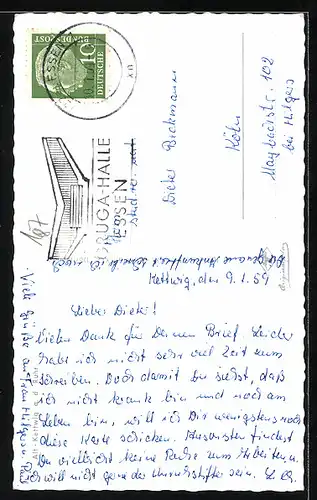 DEUTSCHE
BUNDESPOST
10
ESSEN
GRUGA-HALLE
ESSEN
Herrn
stud. rer. nat.
Dieter Bickmann
Köln
Maybachstr. 102
bei Hilgers
Die genaue Ankunftszeit schreibe ich noch
Kettwig, den 9.1.59
Lieber Dieter!
Vielen Dank für Deinen Brief. Leider
habe ich nicht sehr viel Zeit zum
schreiben. Doch damit Du siehst, daß
ich nicht krank bin und noch am
Leben bin, will ich Dir wenigstens noch
diese Karte schicken. Ansonsten findest
Du vielleicht keine Ruhe zum Arbeiten u.
ich will nicht gern der Unruhstifter sein.
Viele Grüße an Frau Hilgers u.
Alt Kettwig a. d. Ruhr